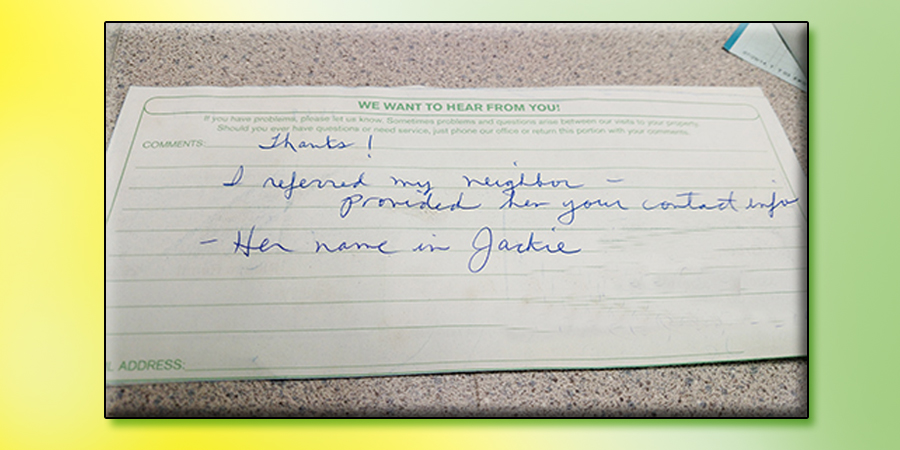 WE WANT TO HEAR FROM YOU!
If you have problems, please let us know. Sometimes problems and questions arise between our visits to your property.
Should you ever have questions or need service, just phone our office or return this portion with your comments.
COMMENTS: Thanks!
I referred my neighbor -
provided her your contact info
- Her name is Jackie
ADDRESS: